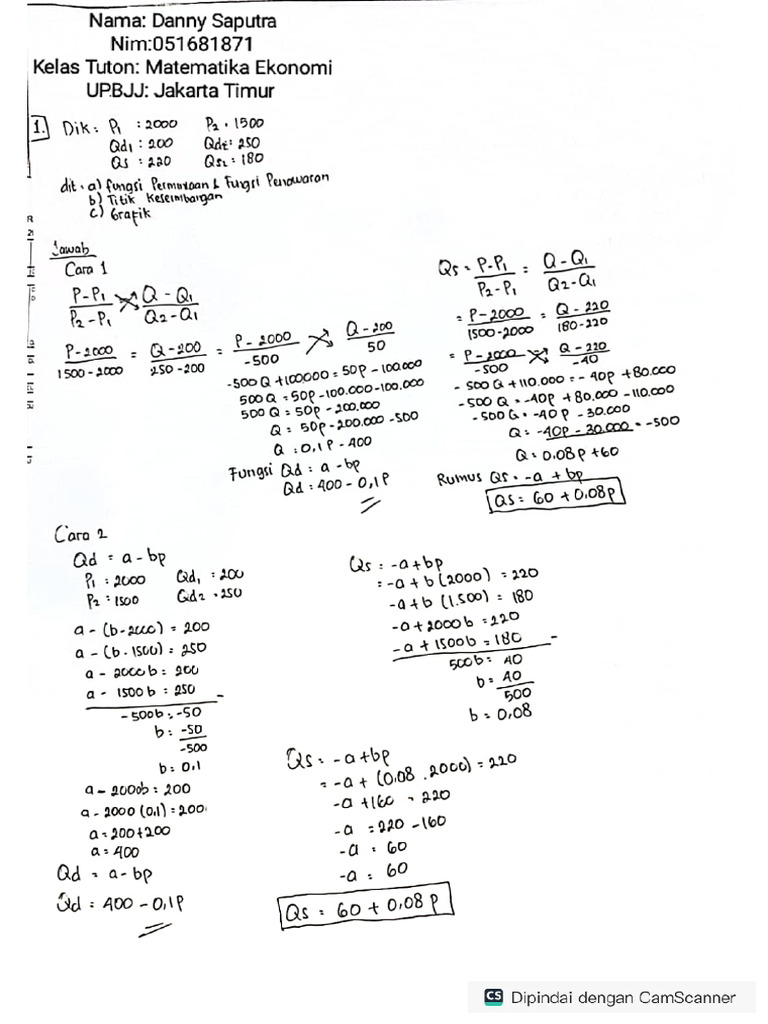 Nama: Danny Saputra
Nim:051681871
Kelas Tuton: Matematika Ekonomi
UPBJJ: Jakarta Timur
1. Dik: P1 : 2000 P2 . 1500
Qd1 : 200 Qd2: 250
Qs : 220 Qs2 : 180
dit . a) fungsi Permintaan & Fungsi Penawaran
b) Titik Keseimbangan
c) Grafik
Jawab
Cara 1
P-P1 / P2-P1 = Q-Q1 / Q2-Q1
P-2000 / 1500-2000 = Q-200 / 250-200 = P-2000 / -500 Q-200 / 50
-500Q + 100000 = 50p - 100.000
500Q = 50p - 100.000 - 100.000
500Q = 50p - 200.000
Q = 50p - 200.000 -500
Q = 0,1p - 400
Fungsi Qd : a - bp
Qd = 400 - 0,1P
Qs = P-P1 / P2-P1 = Q-Q1 / Q2-Q1
= P-2000 / 1500-2000 = Q-220 / 180-220
= P-2000 / -500 Q-220 / -40
-500Q + 110.000 = -40p + 80.000
-500Q = -40p + 80.000 - 110.000
-500Q = -40p - 30.000
Q = -40p - 30.000 = -500
Q = 0.08p + 60
Rumus Qs = -a + bp
Qs = 60 + 0,08p
Cara 2
Qd = a - bp
P1 : 2000 Qd1 : 200
P2 : 1500 Qd2 . 250
a - (b.2000) = 200
a - (b.1500) = 250
a - 2000b = 200
a - 1500b = 250 -
-500b = -50
b = -50 / -500
b = 0,1
a - 2000b = 200
a - 2000 (0,1) = 200
a = 200+200
a = 400
Qd = a - bp
Qd = 400 - 0,1P
Qs = -a+bp
= -a + b(2000) = 220
-a + b (1.500) = 180
-a + 2000b = 220
-a + 1500b = 180 -
500b = 40
b = 40 / 500
b = 0,08
Qs = -a+bp
= -a + (0,08 . 2000) = 220
-a + 160 = 220
-a = 220 - 160
-a = 60
-a = 60
Qs = 60 + 0,08 P
CS Dipindai dengan CamScanner